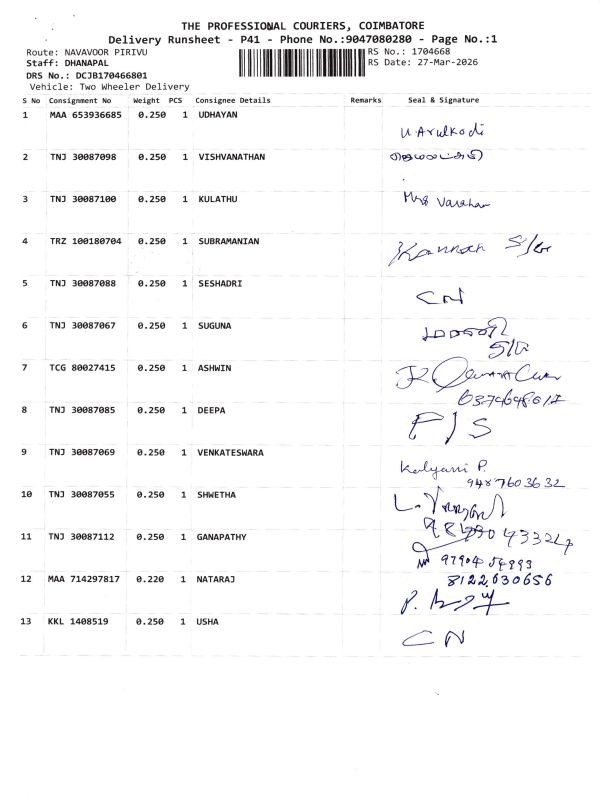 THE PROFESSIONAL COURIERS, COIMBATORE
Delivery Runsheet - P41 - Phone No.:9047080280 - Page No.:1
Route: NAVAVOOR PIRIVU RS No.: 1704668
Staff: DHANAPAL RS Date: 27-Mar-2026
DRS No.: DCJB170466801
Vehicle: Two Wheeler Delivery
S No Consignment No Weight PCS Consignee Details Remarks Seal & Signature
1 MAA 653936685 0.250 1 UDHAYAN
U. Arulkodi
2 TNJ 30087098 0.250 1 VISHVANATHAN
3 TNJ 30087100 0.250 1 KULATHU
4 TRZ 100180704 0.250 1 SUBRAMANIAN
Kannan S/Gr
5 TNJ 30087088 0.250 1 SESHADRI
CN
6 TNJ 30087067 0.250 1 SUGUNA
S/G
7 TCG 80027415 0.250 1 ASHWIN
8 TNJ 30087085 0.250 1 DEEPA
P/S
9 TNJ 30087069 0.250 1 VENKATESWARA
Kalyani P.
9487603632
10 TNJ 30087055 0.250 1 SHWETHA
11 TNJ 30087112 0.250 1 GANAPATHY
97904 54993
12 MAA 714297817 0.220 1 NATARAJ 8122630656
13 KKL 1408519 0.250 1 USHA
CN